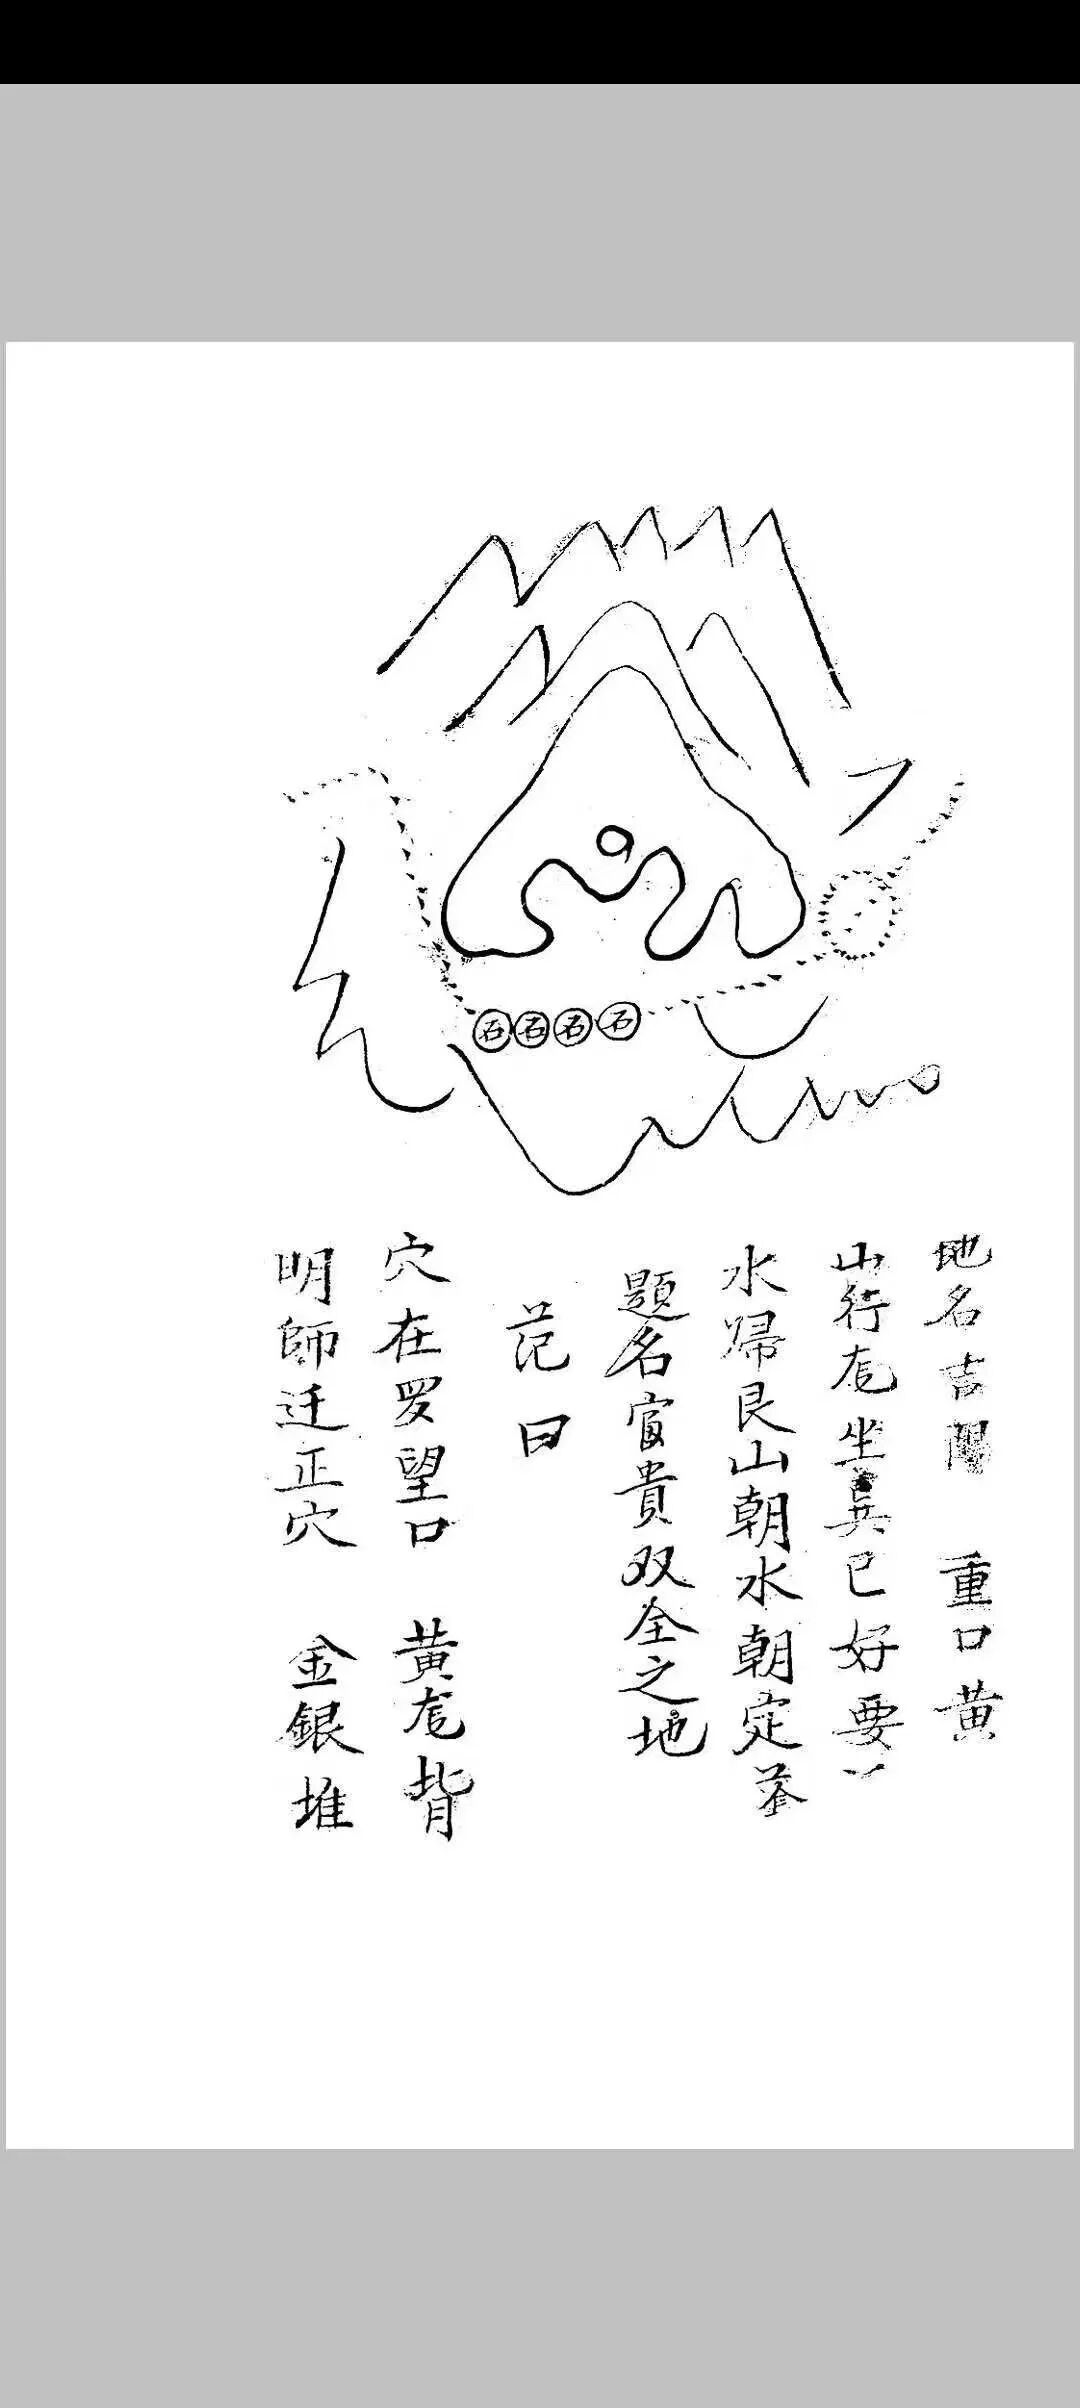 石石石石
地名吉陽 重口黄
山行尨坐巽巳好要
水歸艮山朝水朝定
題名富貴双全之地
范曰
穴在罗望口 黄尨背
明師迁正穴 金銀堆